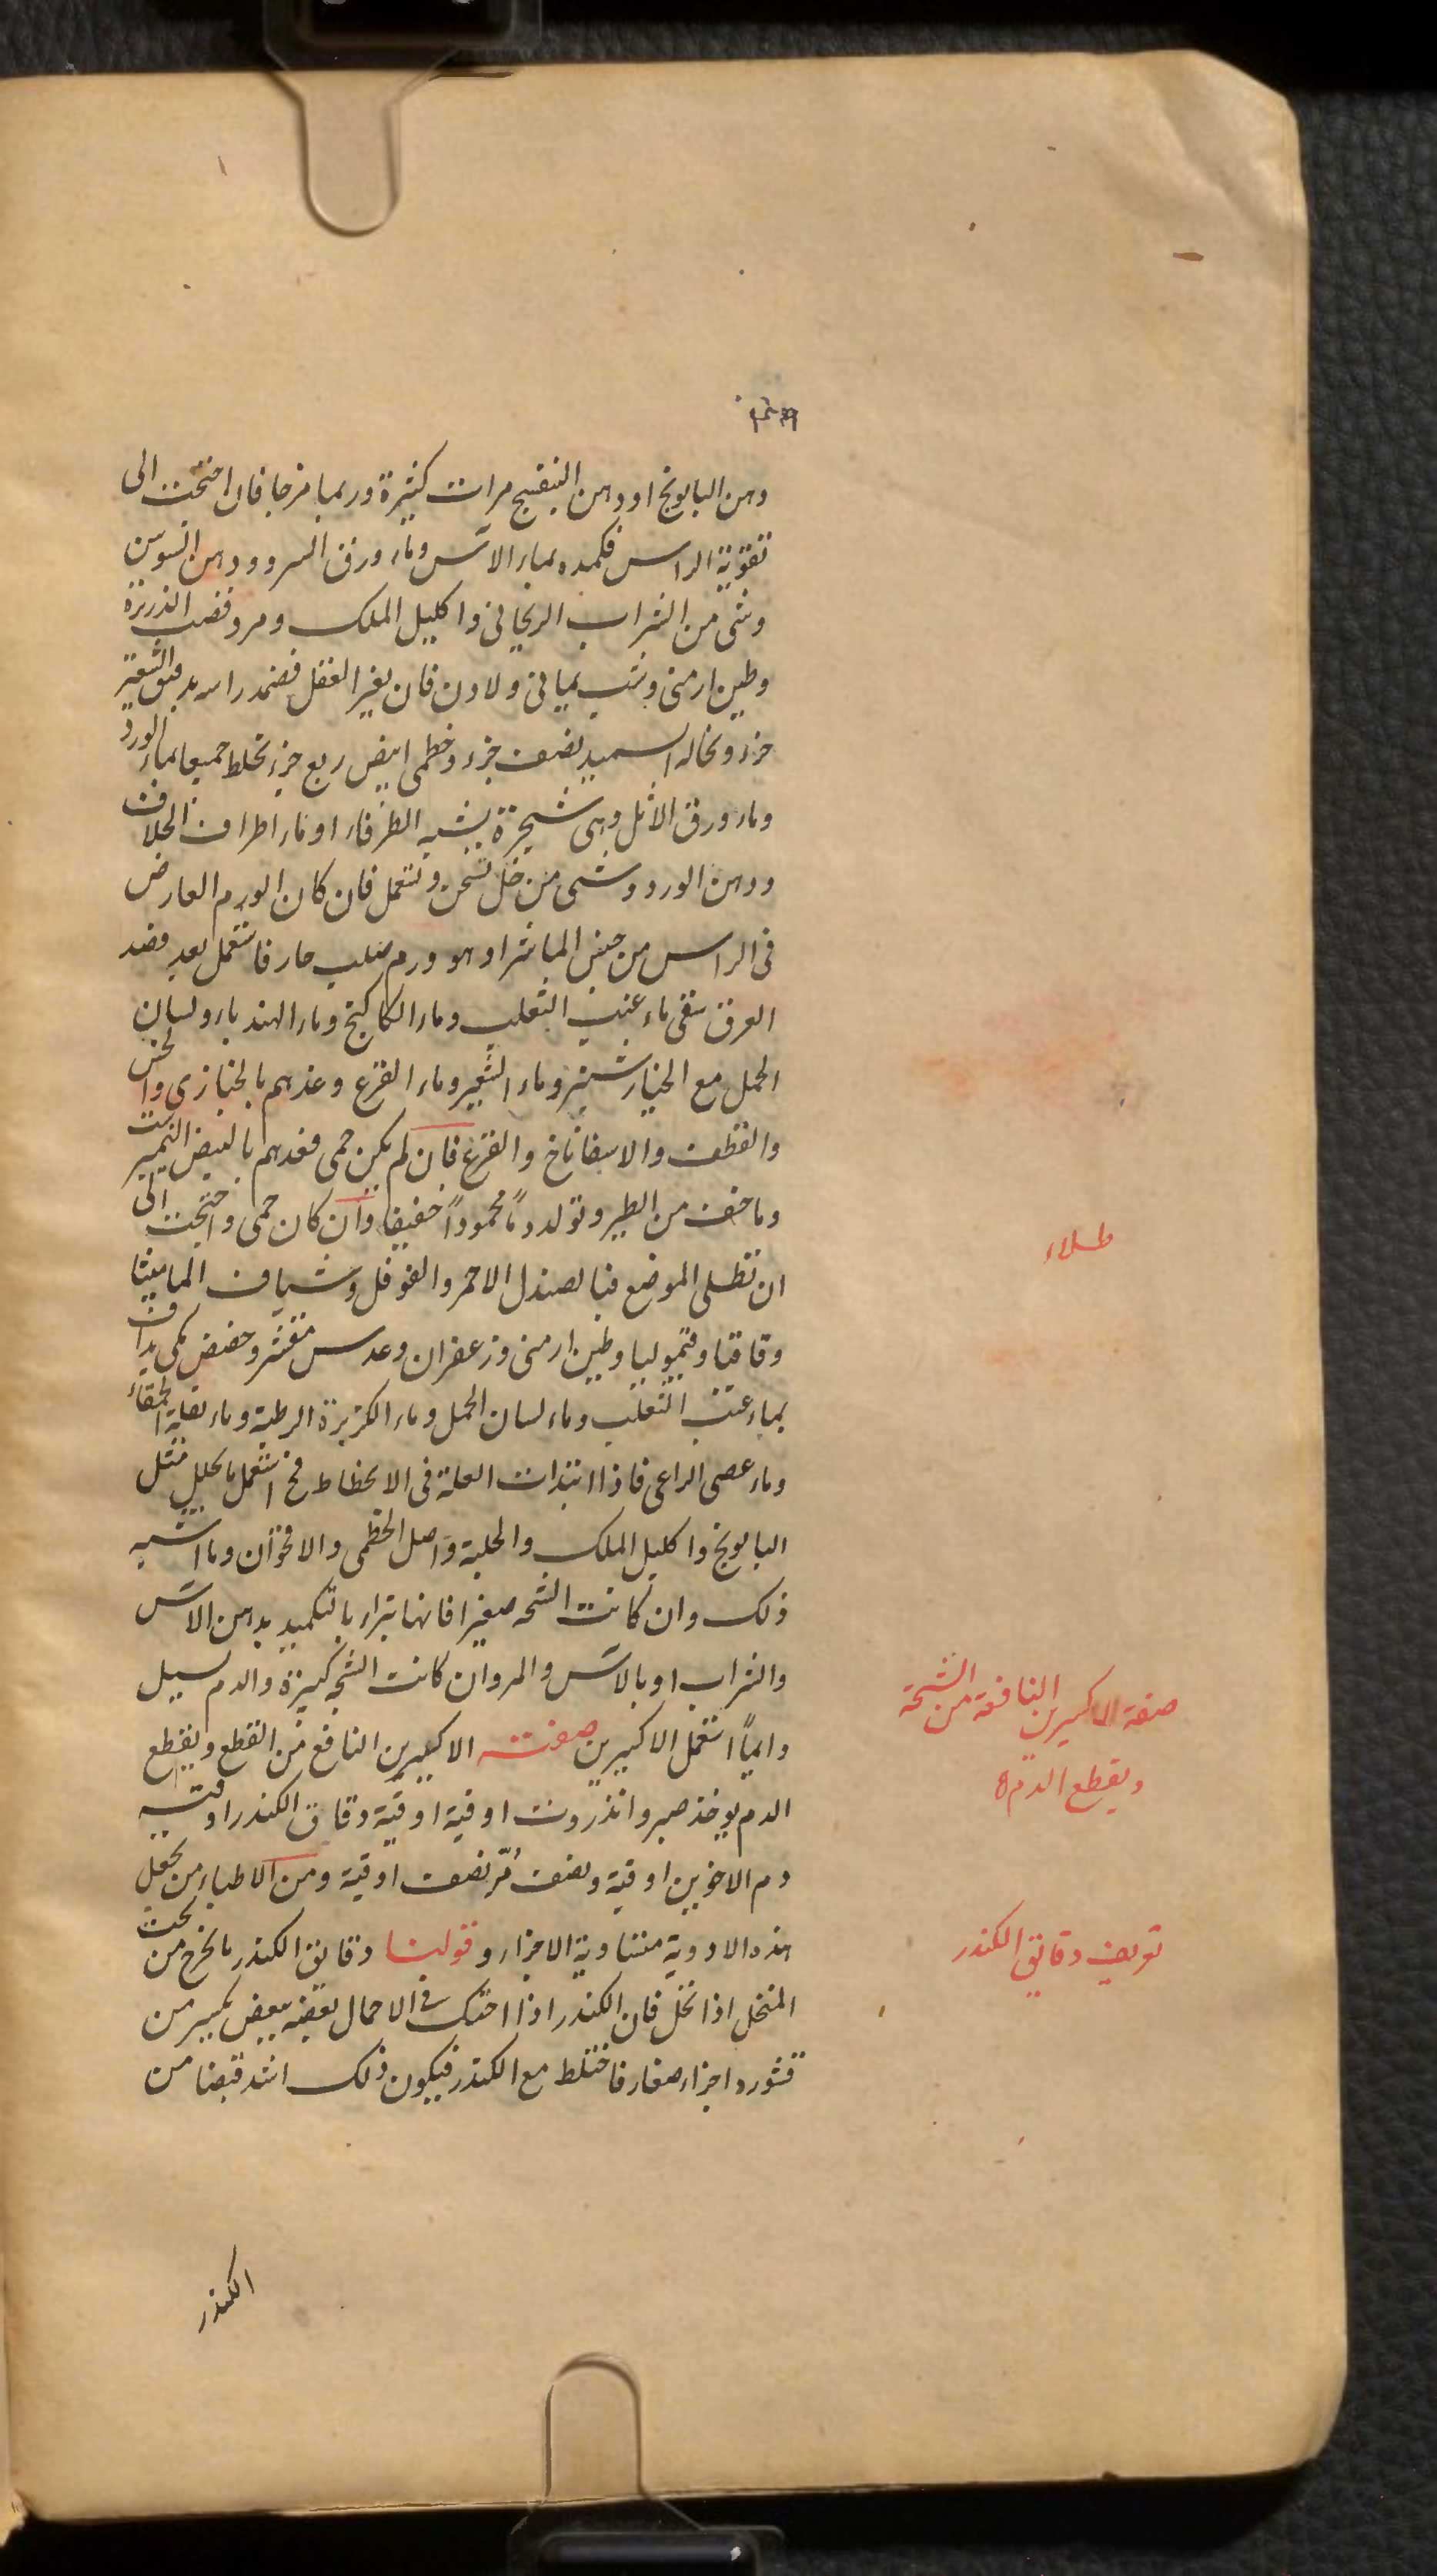 دهن البابونج او دهن البنفسج مرات كثيرة وربما مزجا فان احتجت الى
تقوية الراس فكمده بماء الآس وماء ورق السرو ودهن السوسن
وشى من الشراب الريحانى واكليل الملك ومر وقصب الذريرة
وطين ارمنى وشب يمانى ولادن فان تغير العقل فضمد راسه بدقيق الشعير
جزء ونخاله السميد نصف جزء وخطمى ابيض ربع جزء تخلط جميعا بماء الورد
وماء ورق الاثل وهى شجرة يشبه الطرفاء او ماء اطراف الخلاف
ودهن الورد وشى من خل تسخن وتستعمل فان كان الورم العارض
فى الراس من جنس الماشرا وهو ورم صلب حار فاستعمل بعد فصد
العرق سقى ماء عنب الثعلب وماء الكاكنج وماء الهندباء ولسان
الحمل مع الخيار شنبر وماء الشعير وماء القرع وغذهم بالخبازى والخس
والقطف والاسفاناخ والقرع فان لم يكن حمى فغذهم بالبيض النيمبرشت
وما خف من الطير وتولد دماً محموداً خفيفا وان كان حمى واحتجت الى
ان تطلى الموضع فبالصندل الاحمر والفوفل وشياف الماميثا
وقاقيا وقيموليا وطين ارمنى وزعفران وعدس مقشر وحضض مكى يداف
بماء عنب الثعلب وماء لسان الحمل وماء الكزبرة الرطبة وماء بقلة الحمقاء
وماء عصى الراعى فاذا ابتدات العلة فى الانحطاط فح استعمل ما يحلل مثل
البابونج واكليل الملك والحلبة واصل الخطمى والاقحوان وما اشبه
ذلك وان كانت الشجه صغيرا فانها تبراء بالتكميد بدهن الآس
والشراب او بالآس والمر وان كانت الشجه كبيرة والدم يسيل
دايماً استعمل الاكسيرين صفت الاكسيرين النافع من القطع ويقطع
الدم يوخذ صبر وانذروت اوقية اوقية دقاق الكندر اوقيه
دم الاخوين اوقية ونصف مرّ نصف اوقية ومن الاطباء من يجعل
هذه الادوية متساوية الاجزاء وقولنا دقايق الكندر ما يخرج من تحت
المنخل اذا نخل فان الكندر اذا احتك فى الاحمال بعضه ببعض تكسر من
قشوره اجزاء صغار فاختلط مع الكندر فيكون ذلك اشد قبضا من
الكندر
طلاء
صفة الاكسيرين النافعة من الشجة
ويقطع الدم
توصيف دقايق الكندر